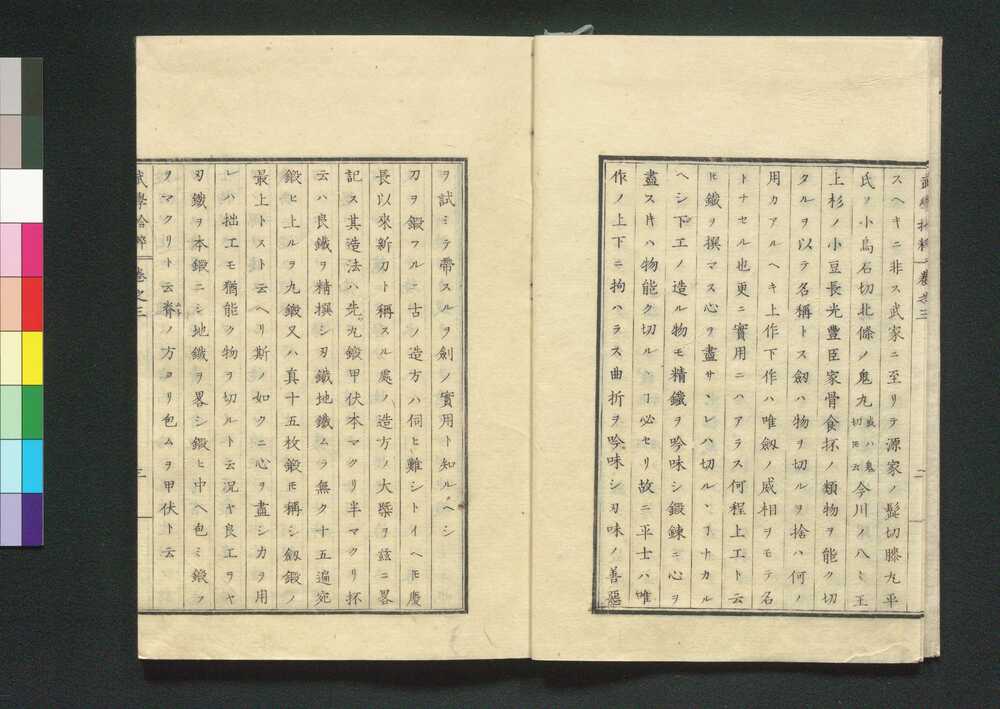 武學拾粹 卷之三
二
スヘキニ非ス武家ニ至リテ源家ノ髭切膝丸平
氏ノ小烏石切北條ノ鬼丸或ハ鬼切モ云今川ノ八々王
上杉ノ小豆長光豊臣家骨食抔ノ類物ヲ能ク切
タルヲ以テ名稱トス劔ハ物ヲ切ルヲ捨ハ何ノ
用カアルヘキ上作下作ハ唯劔ノ威相ヲモテ名
トナセル也更ニ實用ニハアラス何程上工ト云
𪜈鐵ヲ撰マス心ヲ盡サヽレハ切ルヽヿナカル
ヘシ下工ノ造ル物モ精鐵ヲ吟味シ鍛錬ニ心ヲ
盡スキハ物能ク切ルヽヿ必セリ故ニ平士ハ唯
作ノ上下ニ拘ハラス曲折ヲ吟味シ刄味ノ善惡
ヲ試ミテ帶スルヲ劍ノ實用ト知ルヘシ
刀ヲ鍛フルニ古ノ造方ハ伺ヒ難シトイヘ𪜈慶
長以來新刀ト稱スル處ノ造方ノ大槩ヲ玆ニ畧
記ス其造法ハ先丸鍛甲伏本マクリ半マクリ抔
云ハ良鐵ヲ精撰シ刄鐵地鐵ムラ無ク十五遍宛
鍛ヒ上ルヲ九鍛又ハ真十五枚鍛𪜈稱シ劔鍛ノ
最上トスト云ヘリ斯ノ如クニ心ヲ盡シカヲ用
レハ拙工モ猶能ク物ヲ切ルト云況ヤ良工ヲヤ
刄鐵ヲ本鍛ニシ地鐵ヲ畧シ鍛ヒ中ヘ包ミ鍛フ
ヲマクリト云脊ノ方ヨリ包ムヲ甲伏ト云
武學拾粹 卷之三
三